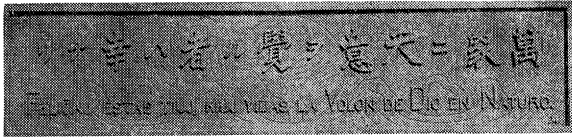 萬象ニ天意ヲ覺ル者ハ幸ナリ
FELIĈAJ ESTAS TIUJ KIUJ VIDAS LA VOLON DE DIO EN NATURO.